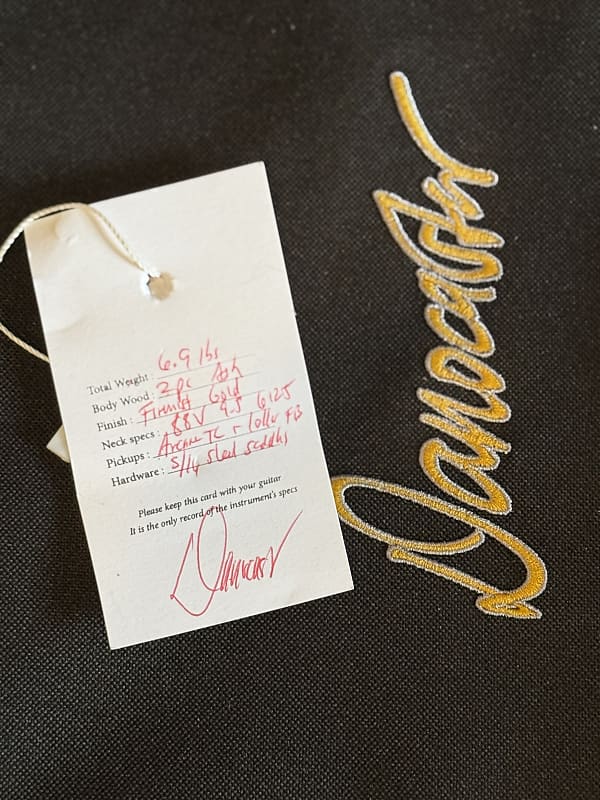 Total Weight : 6.9 lbs
Body Wood : 2pc Ash
Finish : Firemist Gold
Neck specs : .88V 9.5 6125
Pickups : Arcane TC + Lollar FB
Hardware : 5/16 steel saddles
Please keep this card with your guitar
It is the only record of the instrument's specs
Danocaster
Danocaster